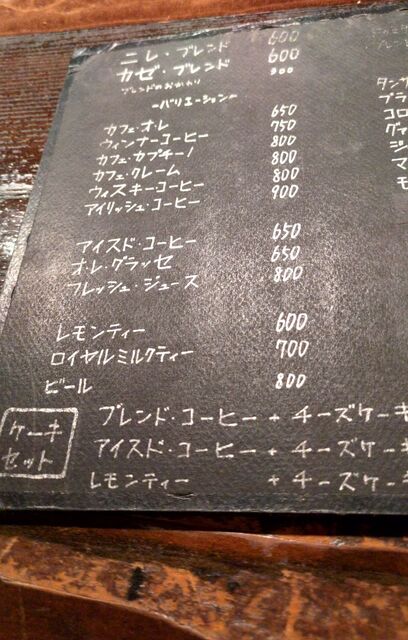 ニレ・ブレンド 600
カゼ・ブレンド 600
ブレンドのおかわり 300
-バリエーション-
カフェ・オ・レ 650
ウィンナーコーヒー 750
カフェ・カプチーノ 800
カフェ・クレーム 800
ウィスキーコーヒー 800
アイリッシュ・コーヒー 900
アイスド・コーヒー 650
オ・レ・グラッセ 650
フレッシュ・ジュース 800
レモンティー 600
ロイヤルミルクティー 700
ビール 800
ケーキ
セット
ブレンド・コーヒー + チーズケーキ
アイスド・コーヒー + チーズケーキ
レモンティー + チーズケーキ
タン
ブラ
コロ
グァ
ジ
マ
モ